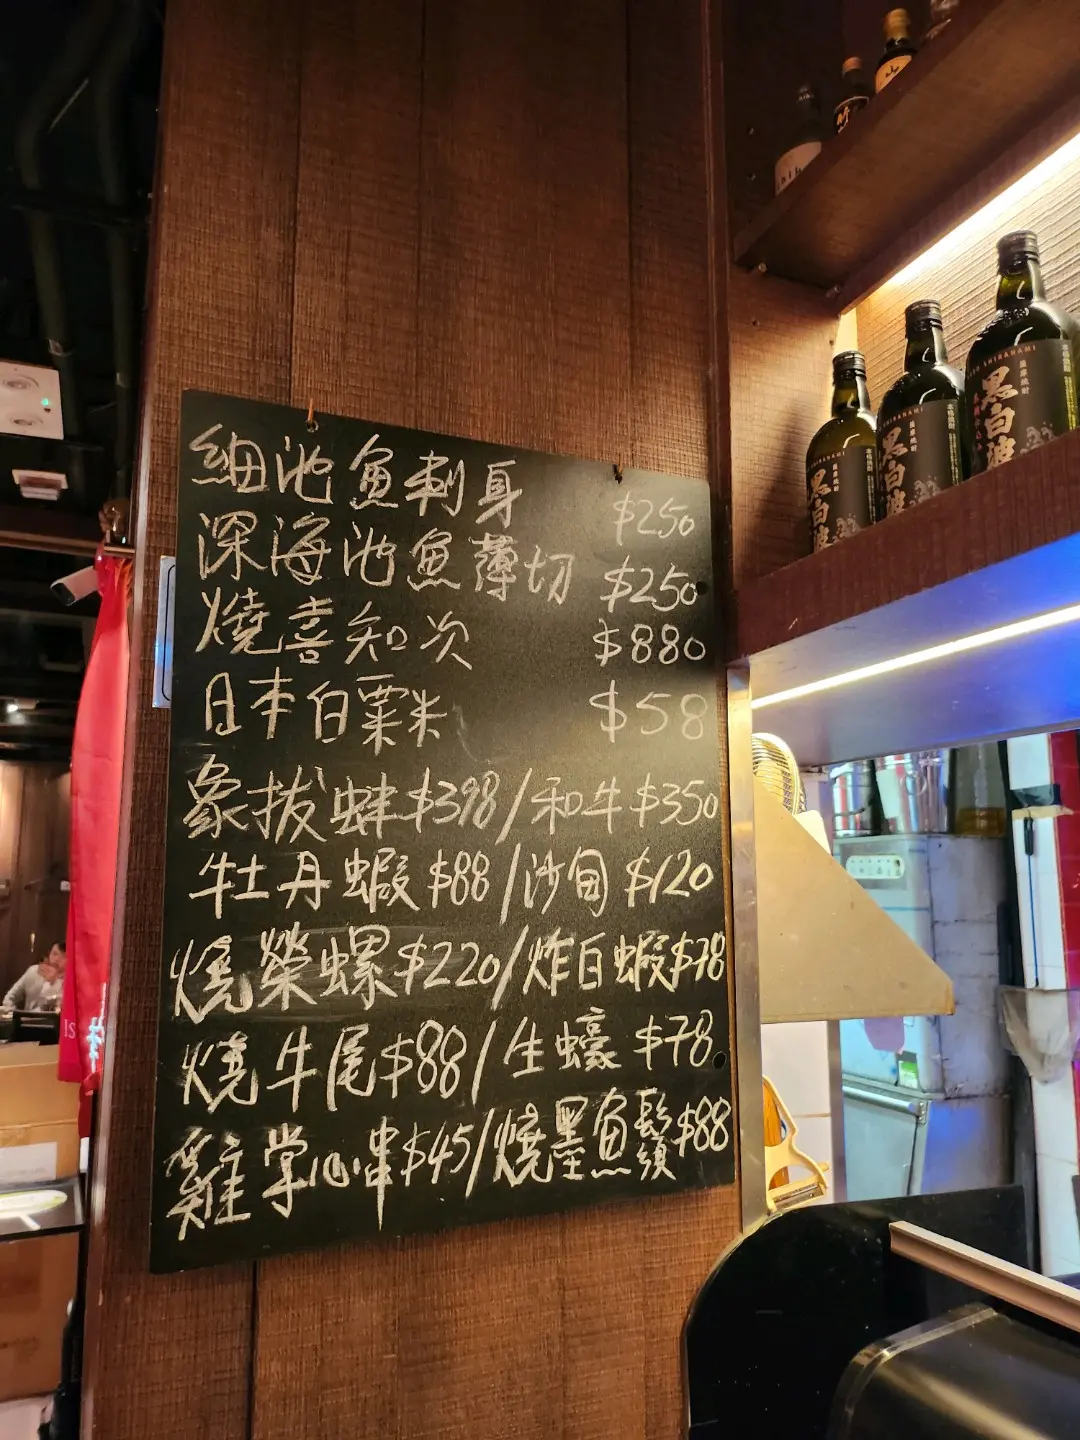 細池魚刺身 $250
深海池魚薄切 $250
燒喜知次 $880
日本白粟米 $58
象拔蚌$398/和牛$350
牡丹蝦$88/沙甸$120
燒榮螺$220/炸白蝦$78
燒牛尾$88/生蠔$78
雞掌心串$45/燒墨魚鬚$88
SHIRANAMI
黑白波
SHIRANAMI
黑白波
黑白波
山